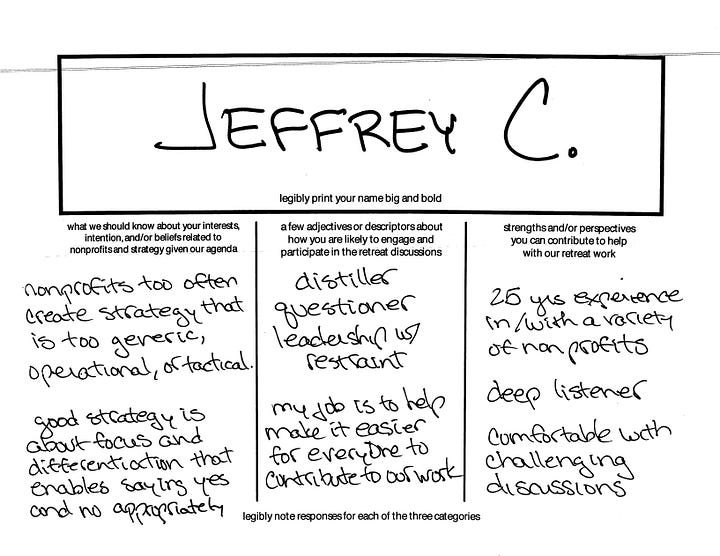 JEFFREY C.
legibly print your name big and bold
what we should know about your interests,
intention, and/or beliefs related to
nonprofits and strategy given our agenda
nonprofits too often
create strategy that
is too generic,
operational, or tactical.
good strategy is
about focus and
differentiation that
enables saying yes
and no appropriately
a few adjectives or descriptors about
how you are likely to engage and
participate in the retreat discussions
distiller
questioner
leadership w/
restraint
my job is to help
make it easier
for everyone to
contribute to our work
strengths and/or perspectives
you can contribute to help
with our retreat work
25 yrs experience
in/with a variety
of nonprofits
deep listener
comfortable with
challenging
discussions
legibly note responses for each of the three categories